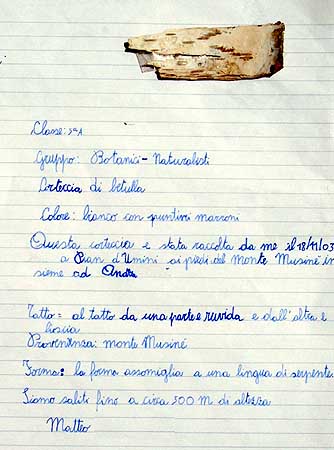 Classe: 5ªA
Gruppo: Botanici - Naturalisti
Corteccia di betulla
Colore: bianco con puntini marroni
Questa corteccia è stata raccolta da me il 18/11/03
a Pian d'Umini ai piedi del Monte Musiné in
sieme ad Andrea
Tatto = al tatto da una parte e ruvida e dall'altra è
liscia
Provenienza: monte Musiné
Forma: la forma assomiglia a una lingua di serpente.
Siamo saliti fino a circa 500 m di altezza
Matteo